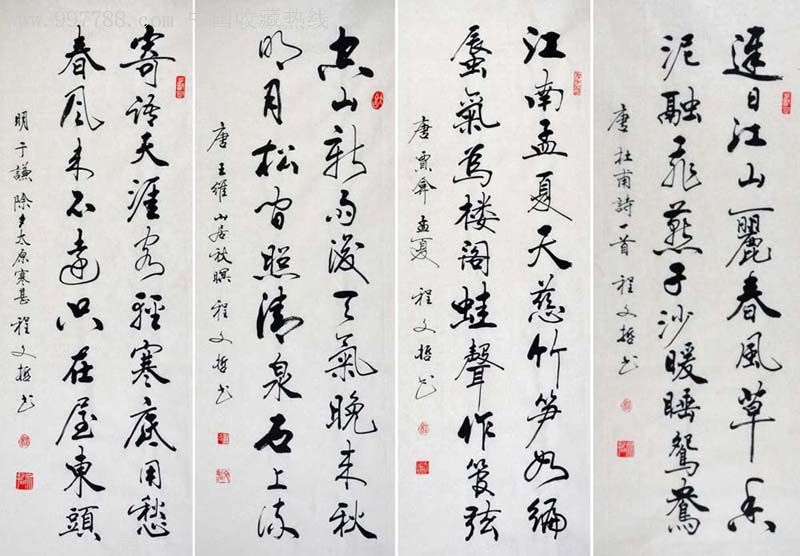 www.997788.com 中国收藏热线
遲日江山麗春風草香
泥融飛燕子沙暖睡鴛鴦
唐 杜甫詩一首 程文哲书
江南孟夏天慈竹笋如编
蜃氣爲楼阁蛙聲作管弦
唐 賈弇 孟夏 程文哲书
空山新雨後天氣晚来秋
明月松間照清泉石上流
唐 王維 山居秋暝 程文哲书
寄語天涯客輕寒底用愁
春風来不遠只在屋東頭
明 于謙 除夕太原寒甚 程文哲书